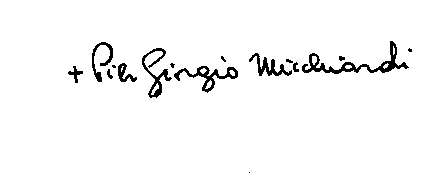 + Pier Giorgio Micchiardi